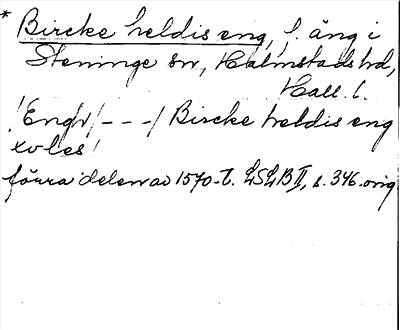 * Bircke heldis eng, f. äng i
Steninge sn, Halmstads hd,
Hall. l.
! Engr /---/ Bircke heldis eng
xv les !
förra delen av 1570-t. LSLB II, s. 346. orig.